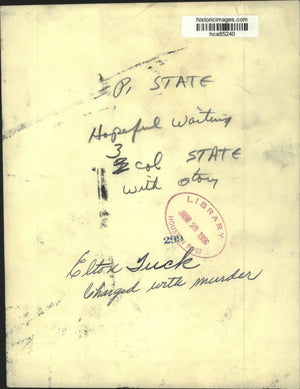 historicimages.com
hca85240
P, STATE
Hopeful Waiting
3
col STATE
with story
LIBRARY
1956
HOUSTON POST
299
Elton Tuck
Charged with murder